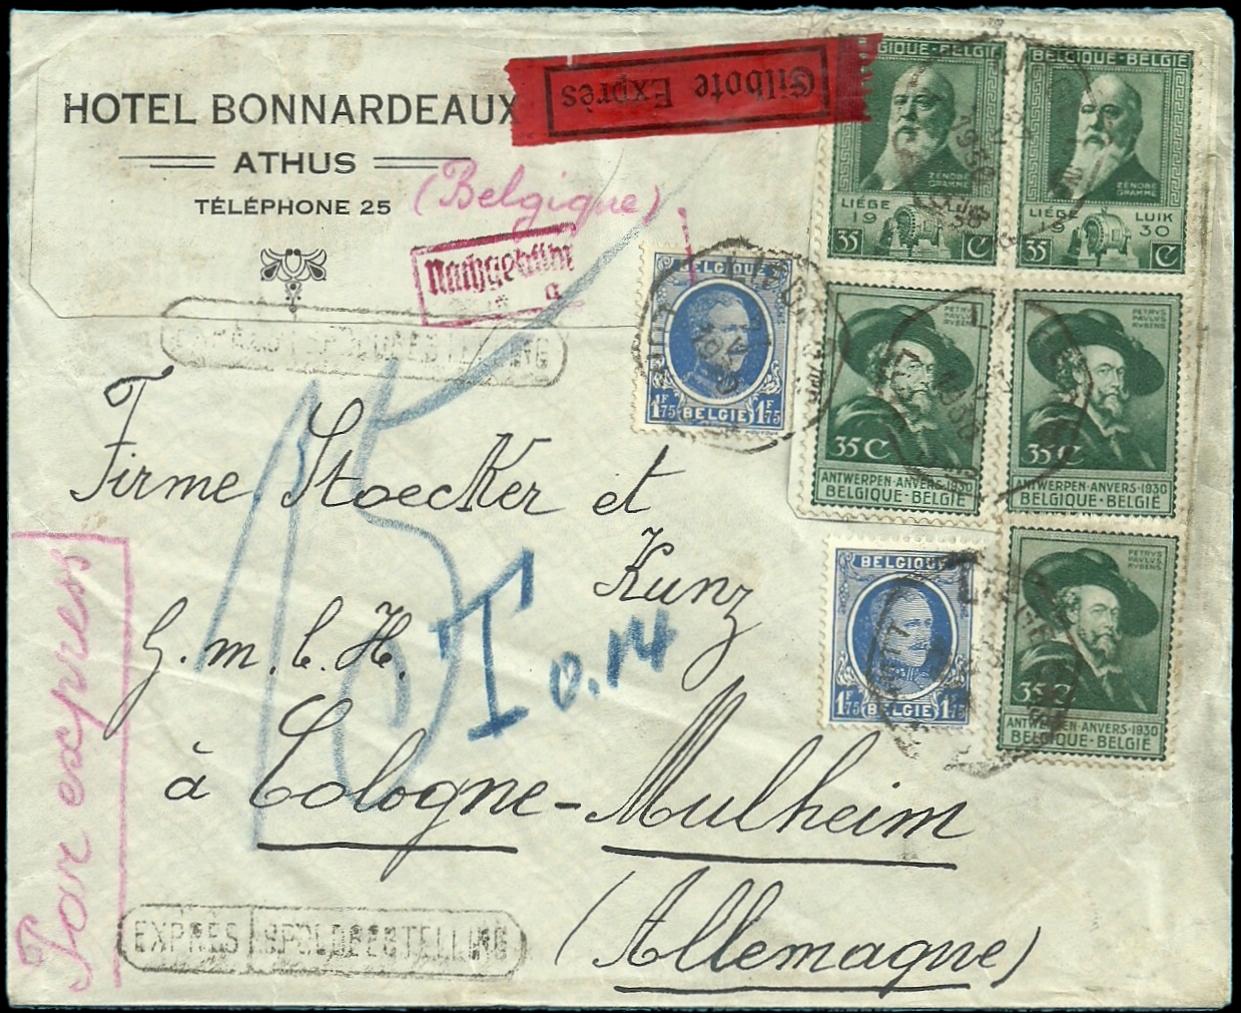 HOTEL BONNARDEAUX
ATHUS
TÉLÉPHONE 25
(Belgique)
Eilbote Exprès
Nachgebühr
EXPRÈS SPOEDBESTELLING
BELGIQUE-BELGIË
ZÉNOBE
GRAMME
LIÉGE
19
35 C
BELGIQUE-BELGIË
ZÉNOBE
GRAMME
LIÉGE LUIK
19 30
35 C
BELGIQUE
1F75 BELGIË 1F75
PETRVS
PAVLVS
RVBENS
35 C
ANTWERPEN·ANVERS·1930
BELGIQUE-BELGIË
PETRVS
PAVLVS
RVBENS
35 C
ANTWERPEN·ANVERS·1930
BELGIQUE-BELGIË
BELGIQUE
1F75 BELGIË 1F75
PETRVS
PAVLVS
RVBENS
35 C
ANTWERPEN·ANVERS·1930
BELGIQUE-BELGIË
Firme Stoecker et
Kunz
G.m.b.H.
à Cologne-Mulheim
(Allemagne)
T 0.14
15
Par express
EXPRÈS SPOEDBESTELLING